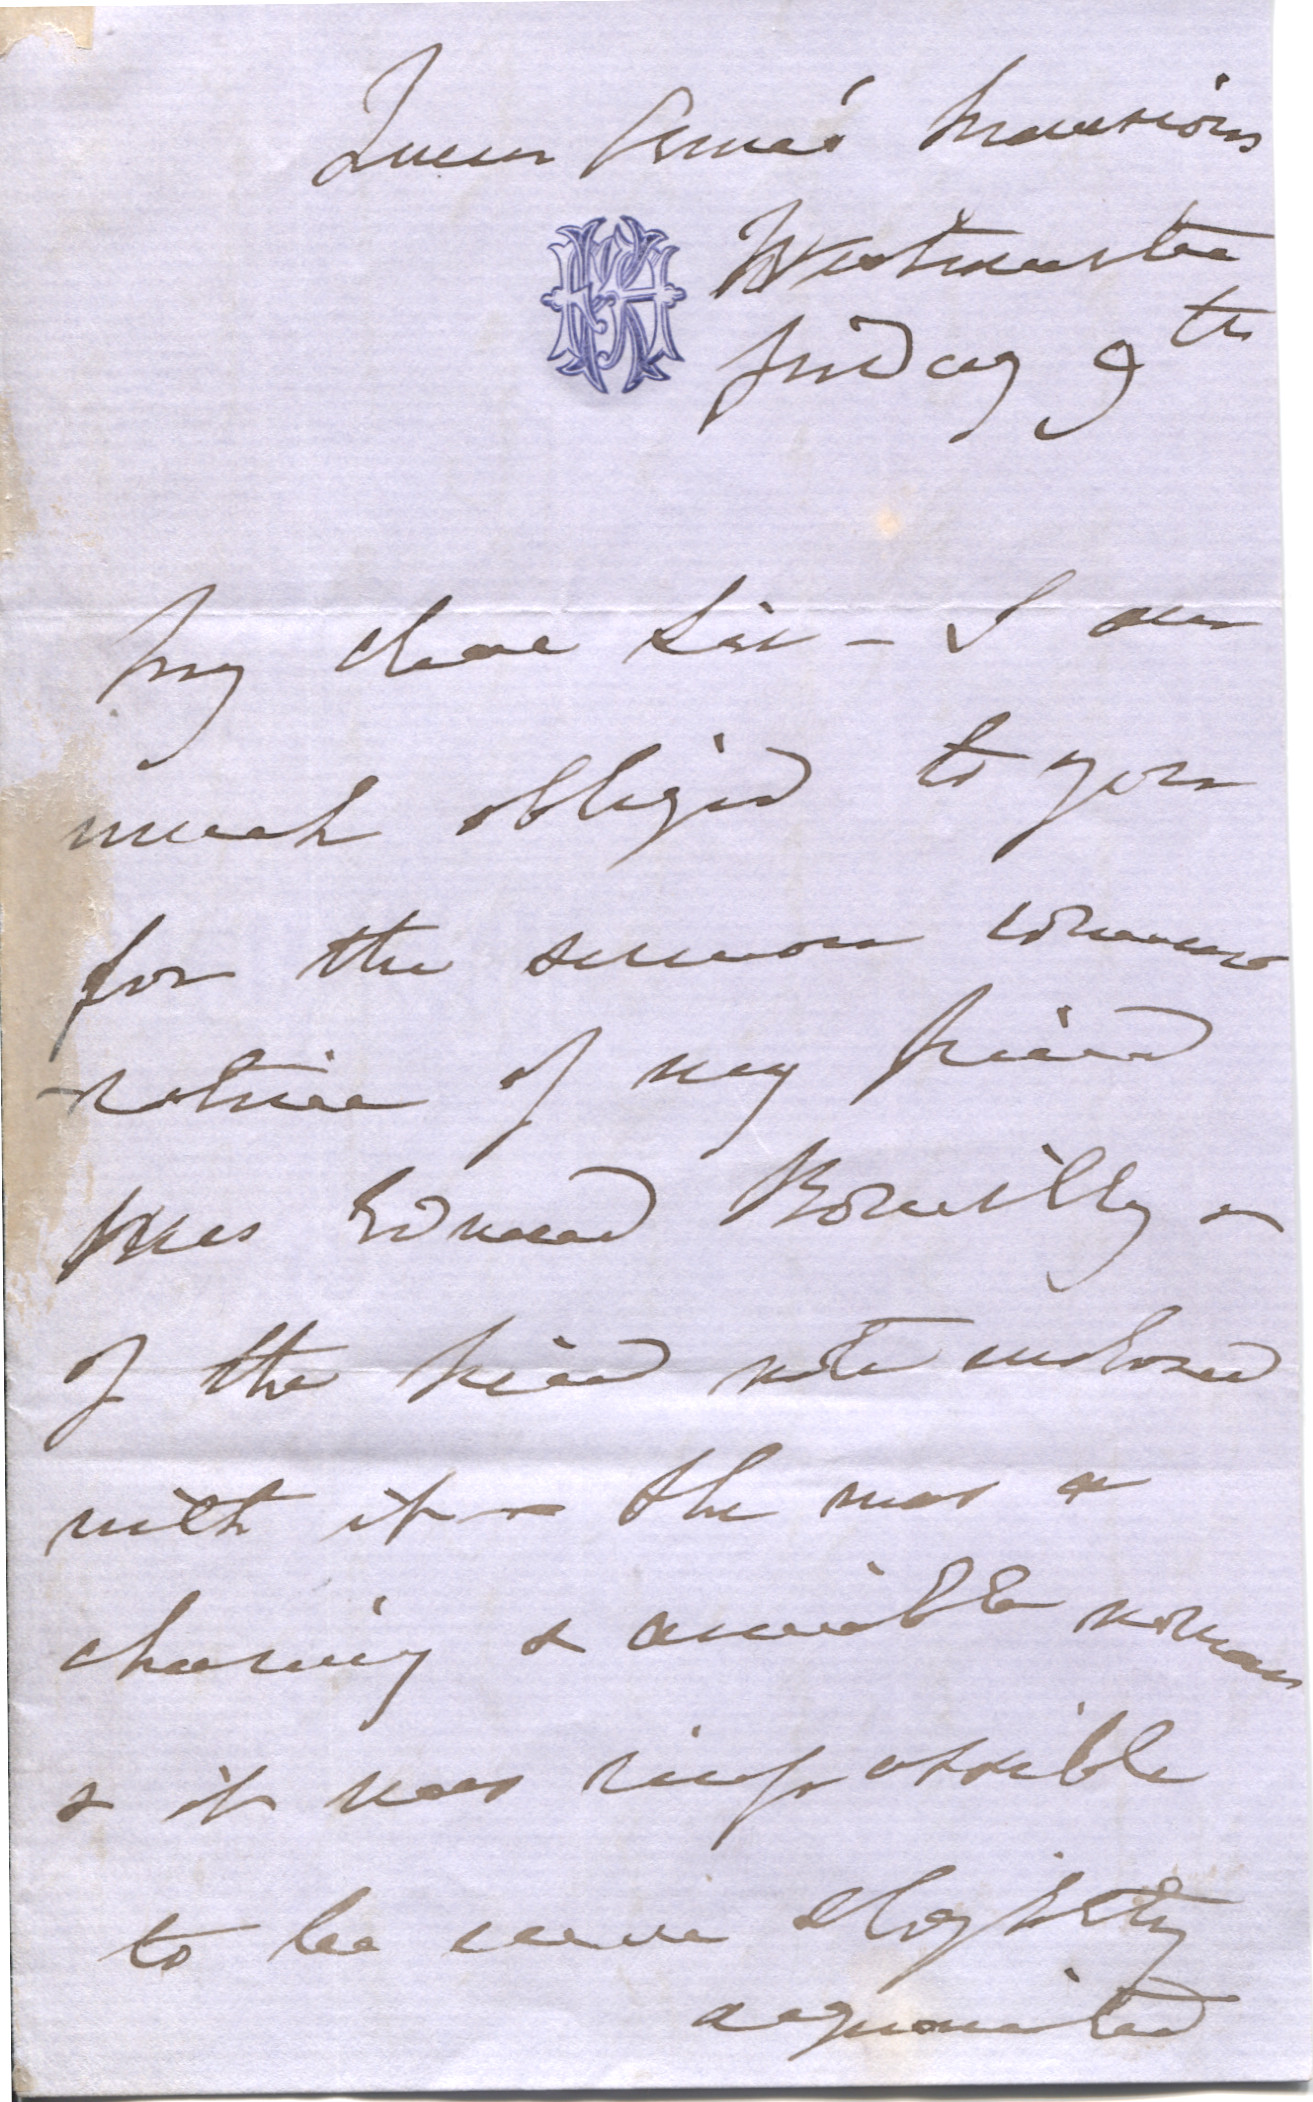 Queen Anne's Mansions
Westminster
Friday 9th
My dear Sir - I am
much obliged to you
for the sermon
notice of my friend
Mrs Edward Romilly -
of the kind note enclosed
with it - She was a
charming & amiable woman
& it was impossible
to be even slightly
acquainted